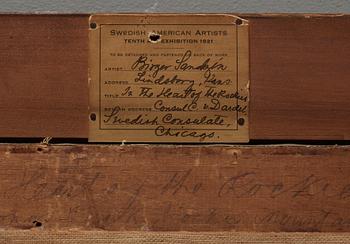 SWEDISH AMERICAN ARTISTS
TENTH EXHIBITION 1921
TO BE DETACHED AND FASTENED BACK OF WORK
ARTIST Birger Sandzén
ADDRESS Lindsborg, Kans
TITLE In The Heart of the Rockies
RETURN ADDRESS Consul C. v. Dardel
Swedish Consulate,
Chicago.
Heart of the Rockies